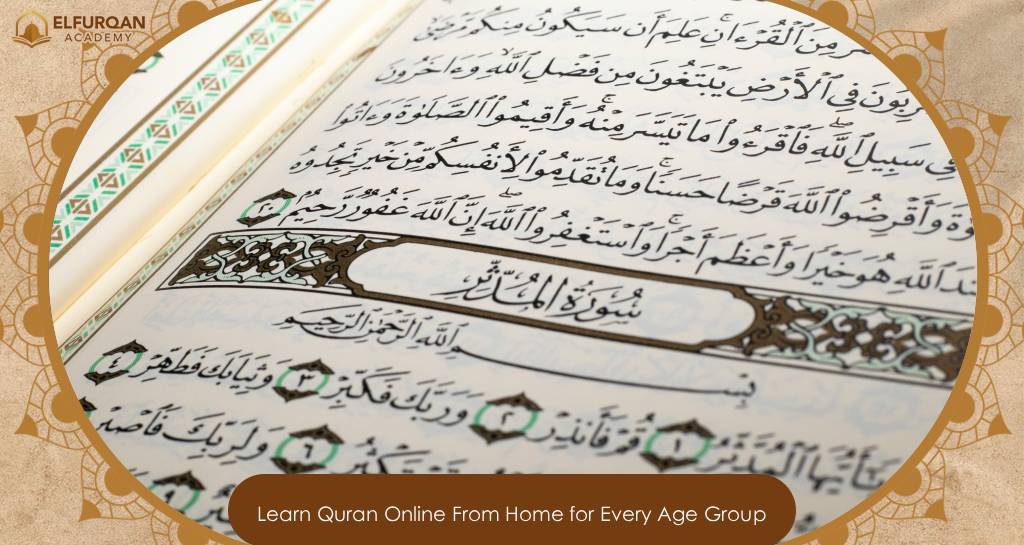 ELFURQAN
ACADEMY
مِنَ ٱلْقُرْءَانِ عَلِمَ أَن سَيَكُونُ مِنكُم مَّرْضَىٰ
فِى ٱلْأَرْضِ يَبْتَغُونَ مِن فَضْلِ ٱللَّهِ وَءَاخَرُونَ
فِى سَبِيلِ ٱللَّهِ فَٱقْرَءُوا۟ مَا تَيَسَّرَ مِنْهُ وَأَقِيمُوا۟ ٱلصَّلَوٰةَ وَءَاتُوا۟
وَأَقْرِضُوا۟ ٱللَّهَ قَرْضًا حَسَنًا وَمَا تُقَدِّمُوا۟ لِأَنفُسِكُم مِّنْ خَيْرٍ تَجِدُوهُ
ٱللَّهِ هُوَ خَيْرًا وَأَعْظَمَ أَجْرًا وَٱسْتَغْفِرُوا۟ ٱللَّهَ إِنَّ ٱللَّهَ غَفُورٌ رَّحِيمٌ ٢٠
سُورَةُ المُدَّثِّرِ
بِسْمِ ٱللَّهِ ٱلرَّحْمَٰنِ ٱلرَّحِيمِ
يَٰٓأَيُّهَا ٱلْمُدَّثِّرُ ١ قُمْ فَأَنذِرْ ٢ وَرَبَّكَ فَكَبِّرْ ٣ وَثِيَابَكَ فَطَهِّرْ ٤
تَسْتَكْثِرُ ٦ وَلِرَبِّكَ فَٱصْبِرْ
٩
Learn Quran Online From Home for Every Age Group